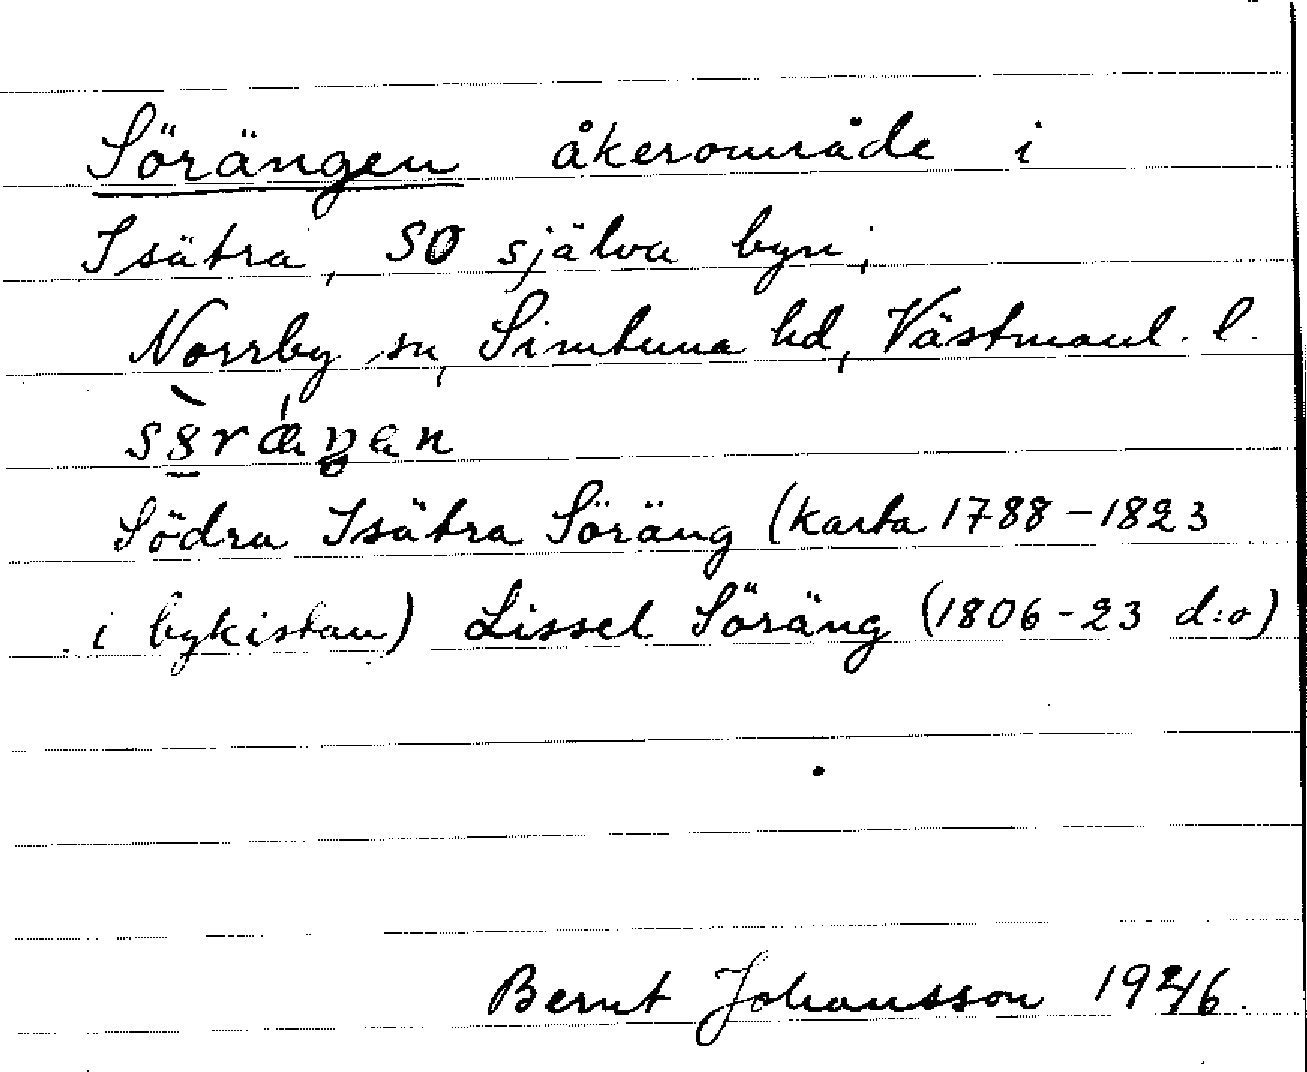 Sörängen åkerområde i
Isätra, SO själva byn,
Norrby sn, Simtuna hd, Västmanl. l.
Södra Isätra Söräng (karta 1788-1823
i bykistan) Lissel Söräng (1806-23 d:o)
Bernt Johansson 1946.